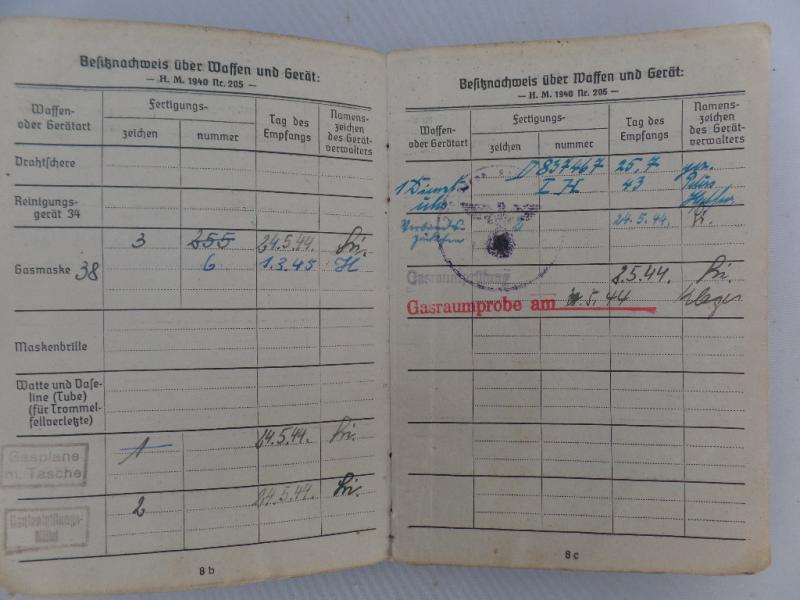 Besitznachweis über Waffen und Gerät:
— H. M. 1940 Nr. 205 —
Waffen- oder Gerätart
Fertigungs-
zeichen
nummer
Tag des Empfangs
Namens- zeichen des Gerät- verwalters
Drahtschere
Reinigungs-
gerät 34
3 255 24.5.44.
Gasmaske 38 6 1.3.45 H
Maskenbrille
Watte und Vase-
line (Tube)
(für Trommel-
fellverletzte)
Gasplane
m. Tasche
1 24.5.44.
2 24.5.44.
8 b
Besitznachweis über Waffen und Gerät:
— H. M. 1940 Nr. 205 —
Waffen- oder Gerätart
Fertigungs-
zeichen
nummer
Tag des Empfangs
Namens- zeichen des Gerät- verwalters
D 837467 25.7
43
uhr
Verbands-
24.5.44.
Gasraumprüfung
.5.44.
Gasraumprobe am .5.44
8 c